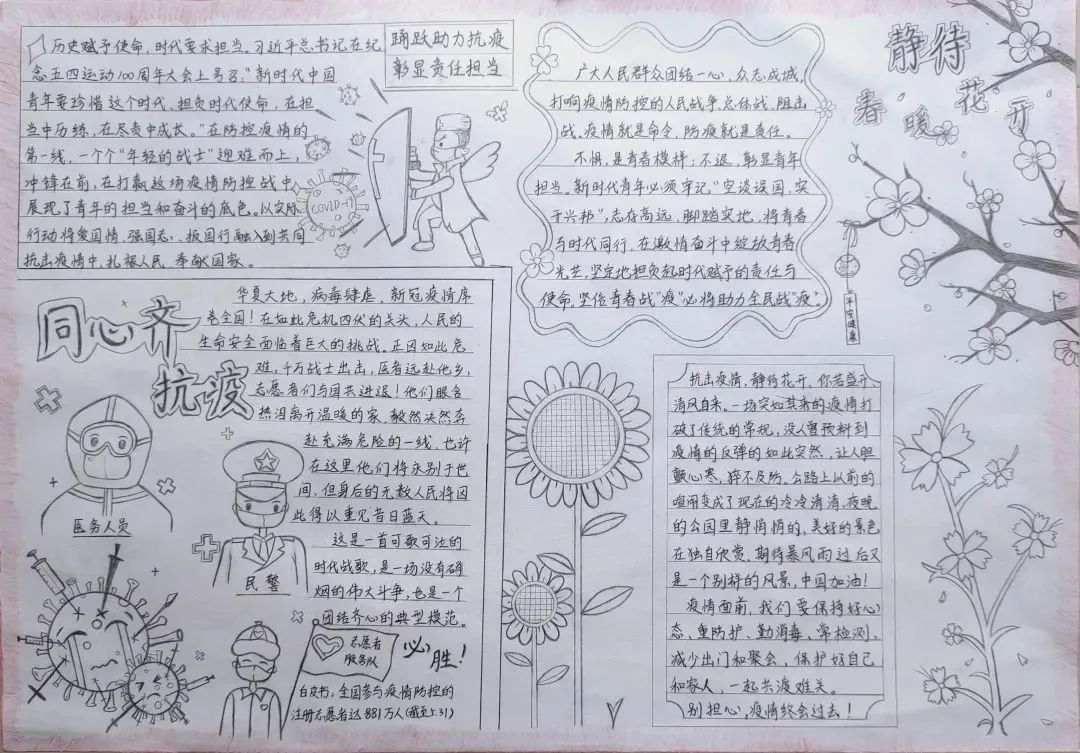 历史赋予使命,时代要求担当。习近平总书记在纪
念五四运动100周年大会上号召:"新时代中国
青年要珍惜这个时代、担负时代使命,在担
当中历练,在尽责中成长。"在防控疫情的
第一线,一个个"年轻的战士"迎难而上,
冲锋在前,在打赢这场疫情防控战中,
展现了青年的担当和奋斗的底色。以实际
行动将爱国情、强国志、报国行融入到共同
抗击疫情中,扎根人民,奉献国家。
踊跃助力抗疫
彰显责任担当
COVID-19
广大人民群众团结一心,众志成城,
打响疫情防控的人民战争、总体战、阻击
战。疫情就是命令,防疫就是责任。
不惧,是青春模样;不退,彰显青年
担当。新时代青年必须牢记"空谈误国,实
干兴邦",志存高远,脚踏实地,将青春
与时代同行,在激情奋斗中绽放青春
光芒,坚定地担负起时代赋予的责任与
使命,坚信青春战"疫"必将助力全民战"疫"。
静待
春暖花开
平安健康
同心齐
抗疫
华夏大地,病毒肆虐,新冠疫情席
卷全国!在如此危机四伏的关头,人民的
生命安全面临着巨大的挑战。正因如此危
难,千万战士出击,医者远赴他乡,
志愿者们与国共进退!他们眼含
热泪离开温暖的家,毅然决然奔
赴充满危险的一线,也许
在这里他们将永别于世
间,但身后的无数人民将因
此得以重见昔日蓝天。
这是一首可歌可泣的
时代战歌,是一场没有硝
烟的伟大斗争,也是一个
团结齐心的典型模范。
医务人员
民警
志愿者
服务队
必胜!
白皮书:全国参与疫情防控的
注册志愿者达881万人(截至5.31)
抗击疫情,静待花开,你若盛开
清风自来。一场突如其来的疫情打
破了传统的常规,没人曾预料到
疫情的反弹的如此突然,让人胆
颤心寒,猝不及防。公路上以前的
喧闹变成了现在的冷冷清清,夜晚
的公园里静悄悄的,美好的景色
在独自欣赏。期待暴风雨过后又
是一个别样的风景,中国加油!
疫情面前,我们要保持好心
态、重防护、勤消毒、常检测、
减少出门和聚会,保护好自己
和家人,一起共渡难关。
别担心,疫情终会过去!